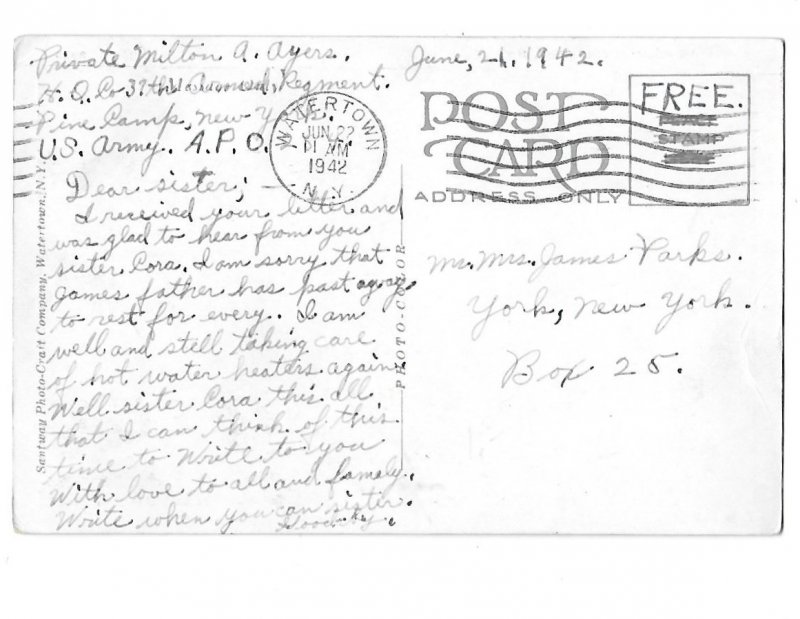 Private Milton A. Ayers.
H.Q. Co 37th Armored Regment.
Pine Camp, New York.
U.S. Army. A.P.O.
June, 21. 1942.
WATERTOWN
JUN 22
1942
N.Y.
POST
CARD
ADDRESS ONLY
FREE.
PLACE
STAMP
Dear sister; —
I received your letter and
was glad to hear from you
sister Cora. I am sorry that
James father has past away
to rest for every. I am
well and still taking care
of hot water heaters again.
Well sister Cora this all
that I can think of this
time to Write to you
With love to all and famely.
Write when you can sister.
Good by.
Mr. Mrs. James Parks.
York, New York.
Box 25.
Santway Photo-Craft Company, Watertown, N.Y.
PHOTO-COLOR